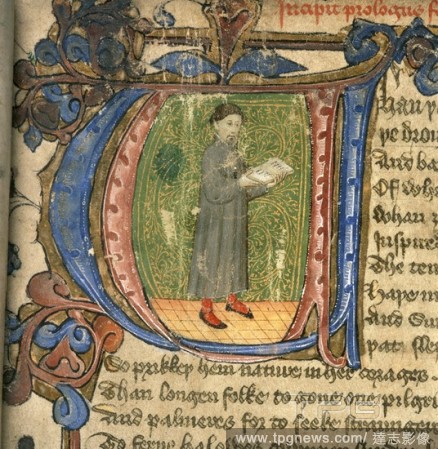 Incipit prologus f
han þ
þe drou
And ba
Of whe
Whan
Inspire
The ten
Haþe in
And
þat slep
So prikkeþ hem nature in her corages
Than longen folke to gone on pilgri
And palmeres for to seke straunger
To ferne halo
TPG
www.tpgnews.com/ 達志影像